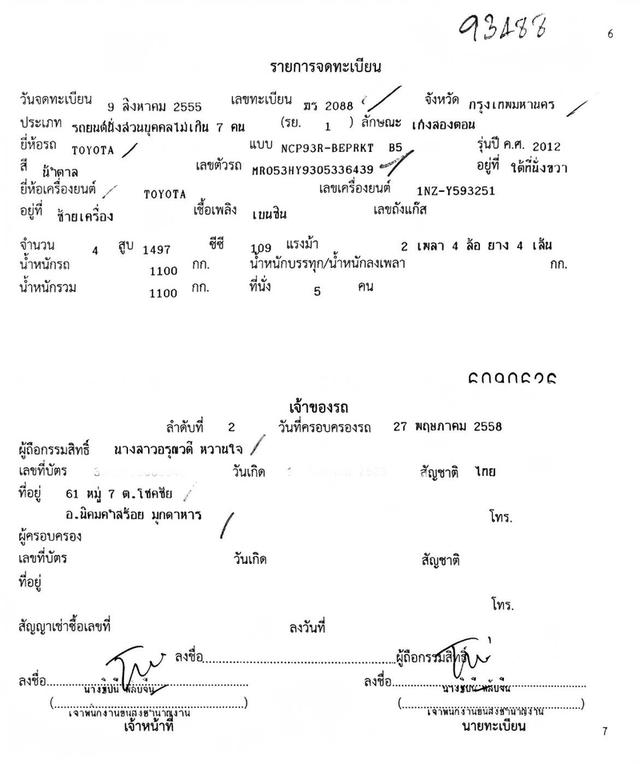 93488
6
รายการจดทะเบียน
วันจดทะเบียน 9 สิงหาคม 2555 เลขทะเบียน ฆร 2088 จังหวัด กรุงเทพมหานคร
ประเภท รถยนต์นั่งส่วนบุคคลไม่เกิน 7 คน (รย. 1 ) ลักษณะ เก๋งสองตอน
ยี่ห้อรถ TOYOTA แบบ NCP93R-BEPRKT B5 รุ่นปี ค.ศ. 2012
สี น้ำตาล เลขตัวรถ MR053HY9305336439 อยู่ที่ ใต้ที่นั่งขวา
ยี่ห้อเครื่องยนต์ TOYOTA เลขเครื่องยนต์ 1NZ-Y593251
อยู่ที่ ซ้ายเครื่อง เชื้อเพลิง เบนซิน เลขถังแก๊ส
จำนวน 4 สูบ 1497 ซีซี 109 แรงม้า 2 เพลา 4 ล้อ ยาง 4 เส้น
น้ำหนักรถ 1100 กก. น้ำหนักบรรทุก/น้ำหนักลงเพลา กก.
น้ำหนักรวม 1100 กก. ที่นั่ง 5 คน
เจ้าของรถ
ลำดับที่ 2 วันที่ครอบครองรถ 27 พฤษภาคม 2558
ผู้ถือกรรมสิทธิ์ นางสาวอรุณวดี หวานใจ
เลขที่บัตร วันเกิด สัญชาติ ไทย
ที่อยู่ 61 หมู่ 7 ต.โชคชัย
อ.นิคมคำสร้อย มุกดาหาร โทร.
ผู้ครอบครอง
เลขที่บัตร วันเกิด สัญชาติ
ที่อยู่
โทร.
สัญญาเช่าซื้อเลขที่ ลงวันที่
ลงชื่อ ผู้ถือกรรมสิทธิ์
ลงชื่อ ลงชื่อ
เจ้าพนักงานขนส่งชำนาญงาน เจ้าพนักงานขนส่งชำนาญงาน
เจ้าหน้าที่ นายทะเบียน
7